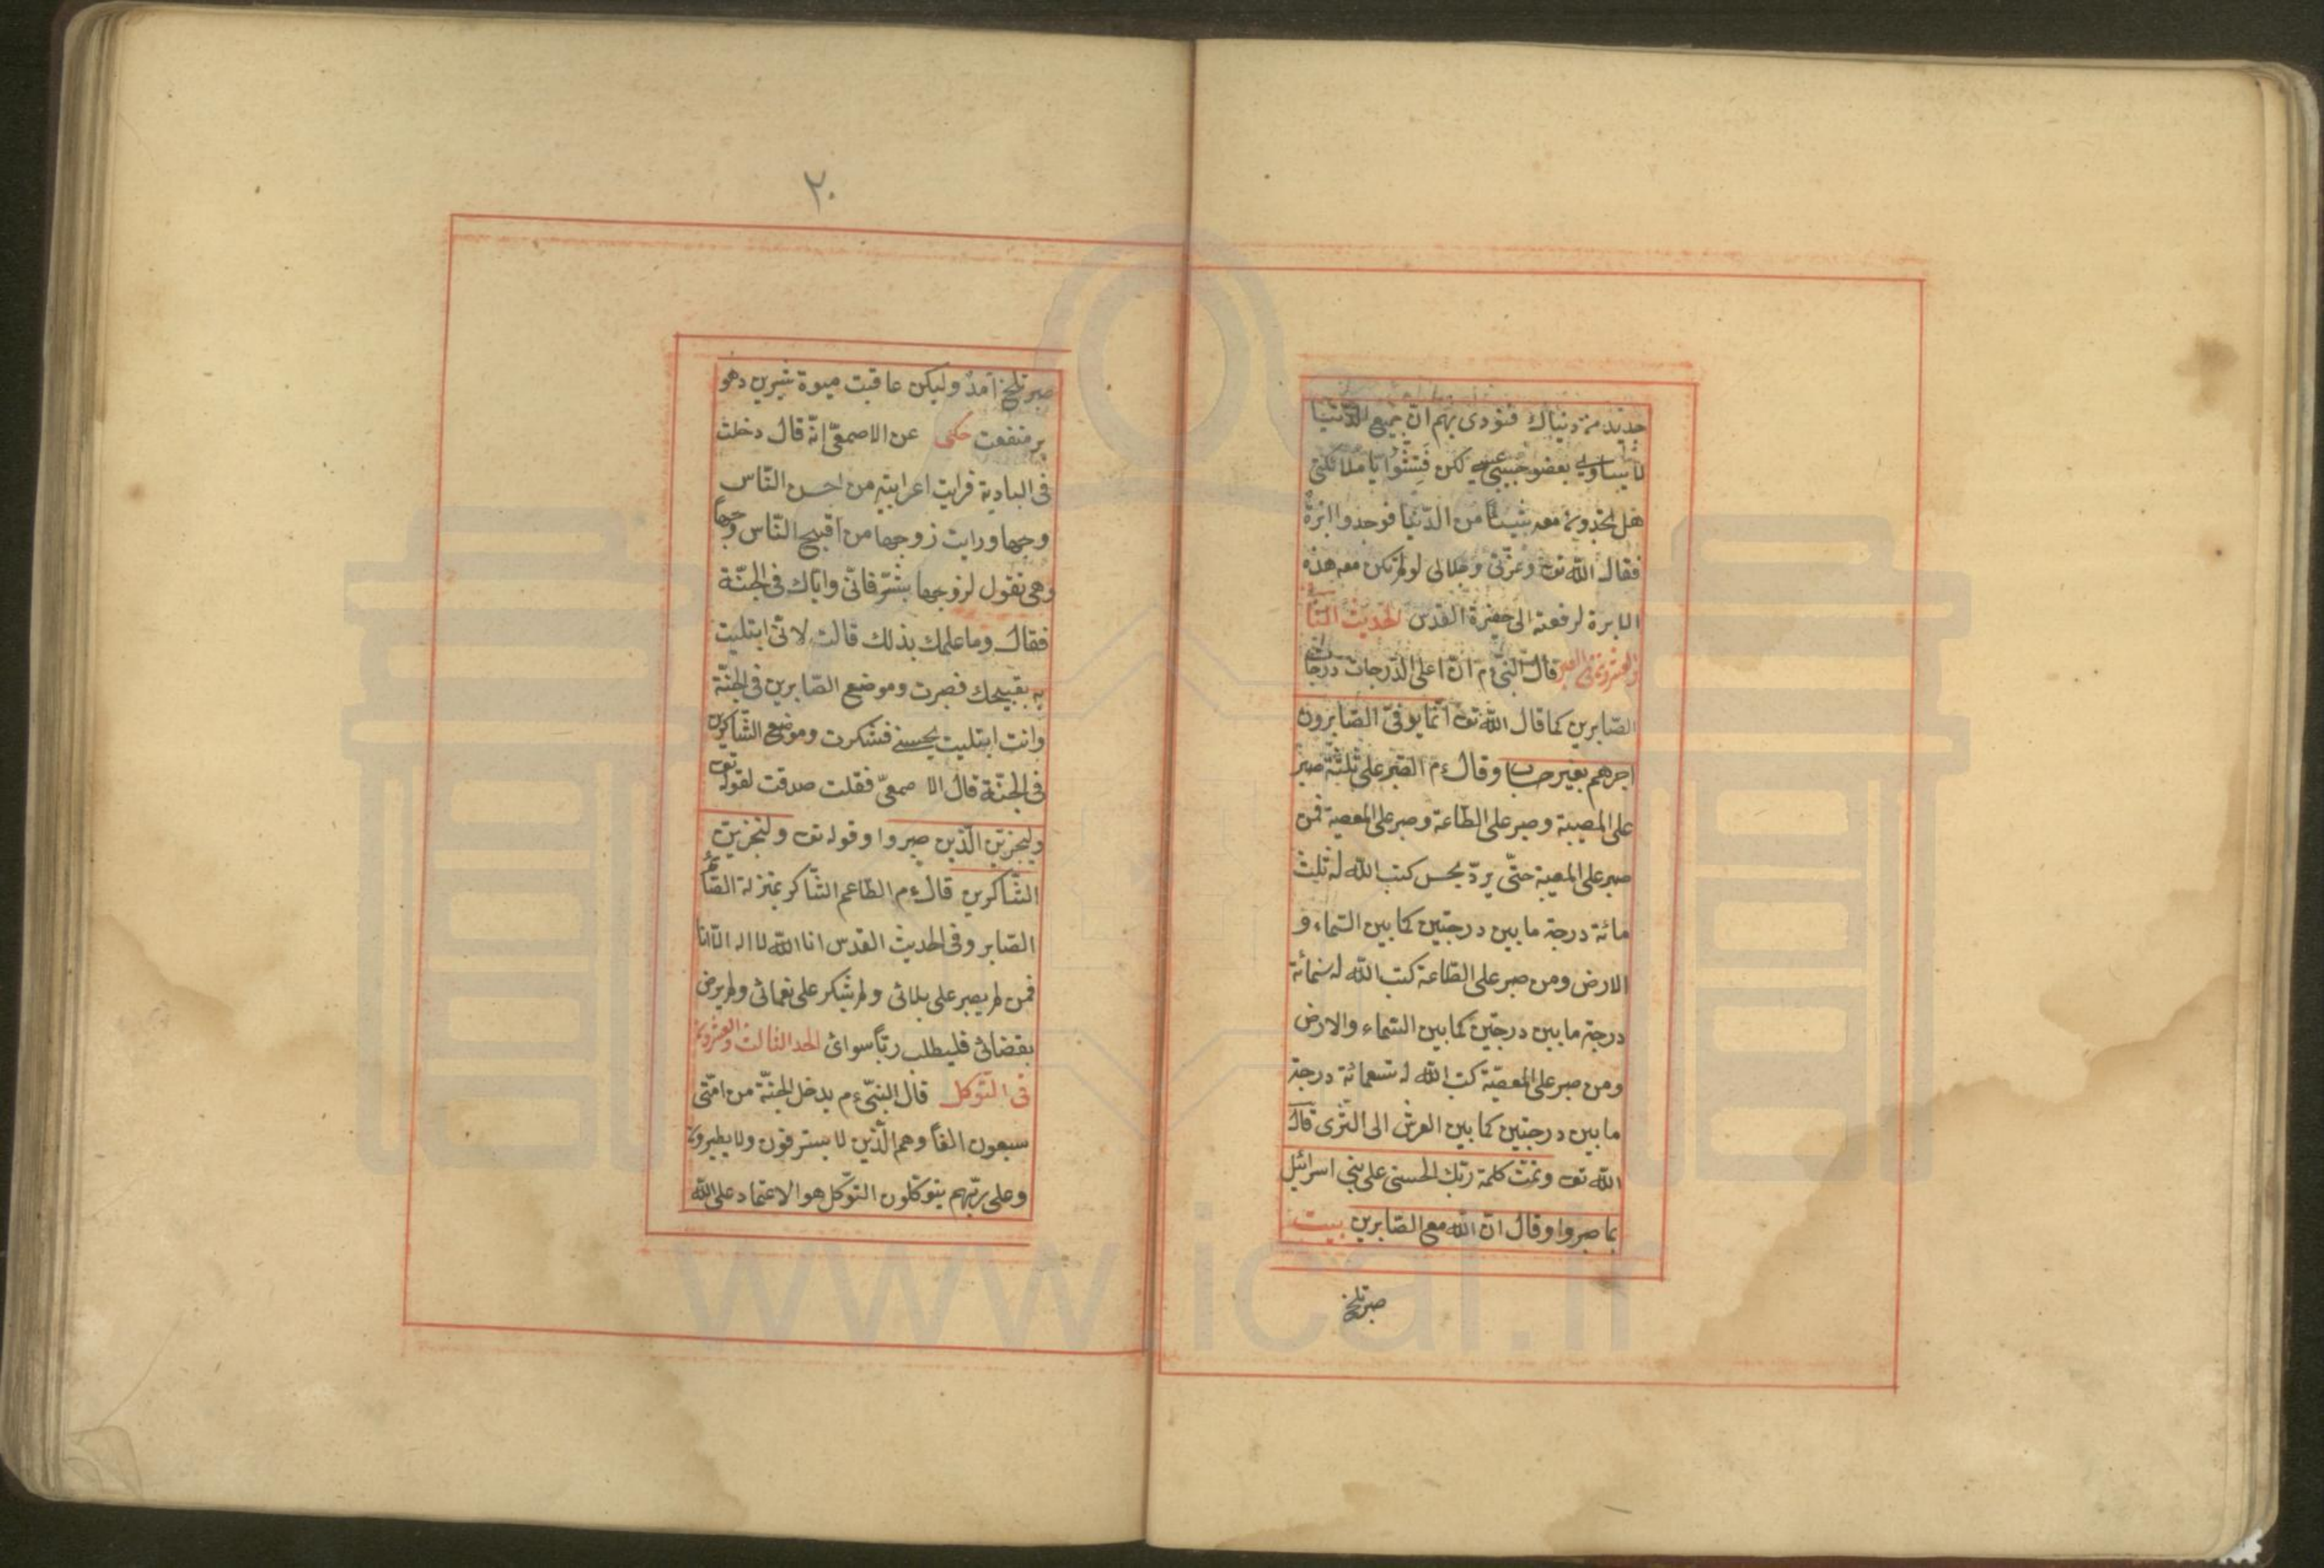 دنياك فنودى بهم انّ جميع الدّنيا
لا يساوى بعضو حبيبى عيسى لكن فتّشوا يا ملائكتى
هل تجدون معه شيئاً من الدّنيا فوجدوا ابرةً
فقال اللّه تعـ وعزّتى وجلالى لو لم تكن معه هذه
الابرة لرفعته الى حضرة القدس الحديث الثانى
والعشرون فى الصبر قال النّبىّ ءم انّ اعلى الدّرجات درجات
الصّابرين كما قال اللّه تعـ انّما يوفىّ الصّابرون
اجرهم بغير حساب وقال ءم الصّبر على ثلثة صبر
على المصيبة وصبر على الطّاعة وصبر على المعصية فمن
صبر على المصيبة حتّى يردّ بحسن كتب اللّه له ثلث
مائة درجة ما بين درجتين كما بين السّماء و
الارض ومن صبر على الطّاعة كتب اللّه له ستمائة
درجة ما بين درجتين كما بين السّماء والارض
ومن صبر على المعصيّة كتب اللّه له تسعمائة درجة
ما بين درجتين كما بين العرش الى الثرى قال
اللّه تعـ وتمّت كلمة ربّك الحسنى على بنى اسرائيل
بما صبروا وقال انّ اللّه مع الصّابرين بيت
صبر تلخ
٢٠
صبر تلخ آمد وليكن عاقبت ميوهٔ شيرين دهد
پر منفعت حكى عن الاصمعىّ انّه قال دخلت
فى البادية فرايت اعرابيّة من احسن النّاس
وجها ورايت زوجها من اقبح النّاس وجهاً
وهى تقول لزوجها بشّر فانّى وايّاك فى الجنّة
فقال وما علمك بذلك قالت لانّى ابتليت
به بقبيحك فصبرت وموضع الصّابرين فى الجنّة
وانت ابتليت بحسنى فشكرت وموضع الشّاكرين
فى الجنّة قال الاصمعىّ فقلت صدقت لقوله تعـ
ولنجزينّ الّذين صبروا وقوله تعـ ولنجزينّ
الشّاكرين قال ءم الطّاعم الشّاكر بمنزلة الصّائم
الصّابر وفى الحديث القدس انا اللّه لا اله الّا انا
فمن لم يصبر على بلائى ولم يشكر على نعمائى ولم يرض
بقضائى فليطلب ربّاً سوائى الحد الثالث والعشرون
فى التّوكل قال النّبىّ ءم يدخل الجنّة من امّتى
سبعون الفاً وهم الّذين لا يسترقون ولا يطيرون
وعلى ربّهم يتوكّلون التّوكّل هو الاعتماد على اللّه
www.ical.ir